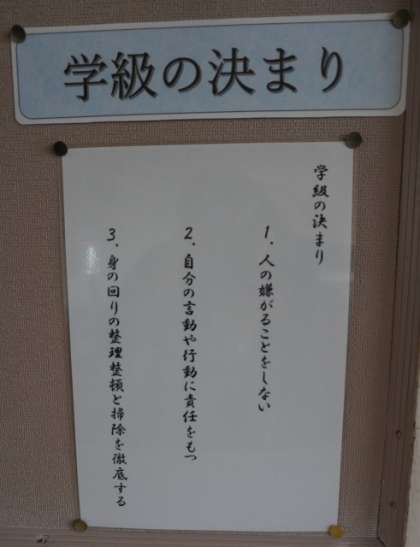 学級の決まり
学級の決まり
1．人の嫌がることをしない
2．自分の言動や行動に責任をもつ
3．身の回りの整理整頓と掃除を徹底する